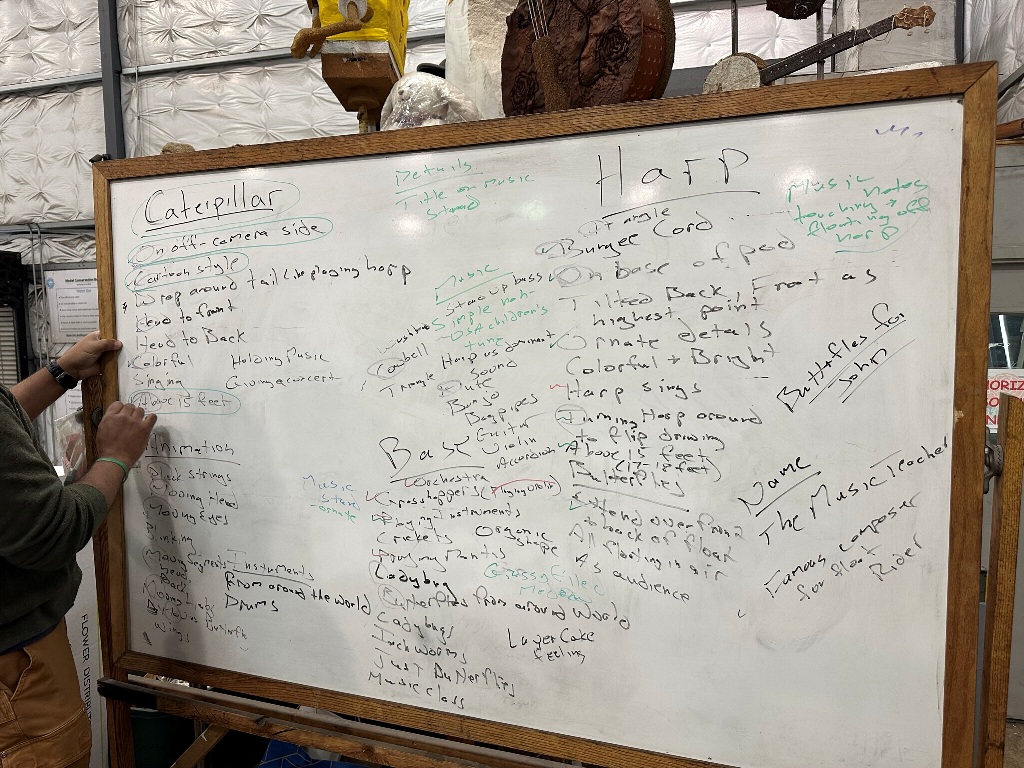 Caterpillar
On off-camera side
Cartoon style
Wrap around tail like playing harp
Head to front
Head to Back
Colorful
Holding Music
Singing
Giving a concert
Above 15 feet
Animation
strings
Head
Moving Eyes
Moving Segments
Head
Wings
Instruments
From around the world
Drums
Details
Title on Music
Stand
Music
Stand up bass
Simple not
children's
tune
Cowbell
Triangle
Harp as dominant
Sound
Flute
Banjo
Bagpipes
Guitar
Violin
Accordion
Music
stand
ornate
Base
Orchestra
Grasshoppers (Playing Violin)
Playing Instruments
Crickets
Organic
Shape
Praying Mantis
Ladybug
Grassy filled
Meadow
Butterflies from around World
Ladybugs
Inch Worms
Layer Cake
feeling
Just Butterflies
Music class
Harp
Triangle
Bungee Cord
On base of pod
Tilted Back, Front as
highest point
Ornate details
Colorful + Bright
Harp sings
Turning Harp around
to flip drawing
Above 15 feet
(17-18 feet)
Butterflies
Extend over front
to back of float
All floating in air
As audience
Music
notes
touching +
floating off
harp
Butterflies for
John
Name
The Music Teacher
Famous composer
for float
Rider
FLOWER DISTRIB